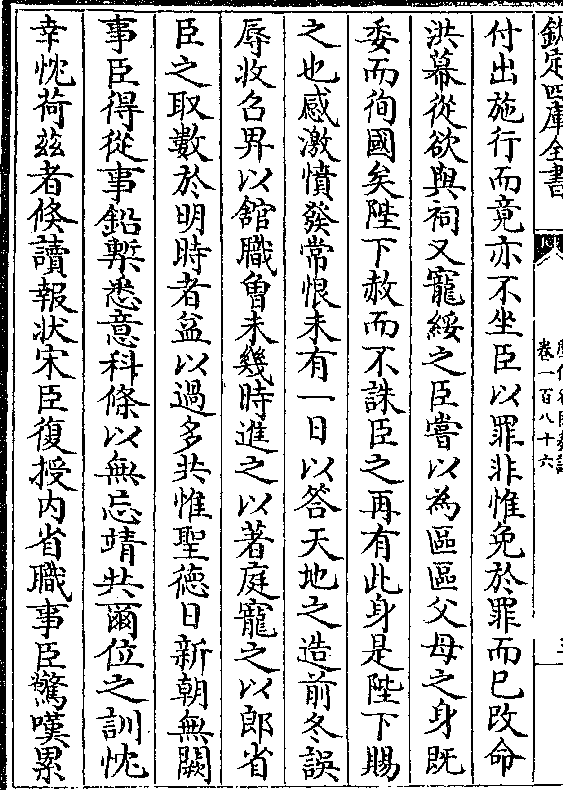 欽定四庫全書
卷一百八十六
付出施行而竟亦不坐臣以罪非惟免於罪而已改命
洪幕從欲與祠又寵綏之臣嘗以為區區父母之身既
委而徇國矣陛下赦而不誅臣之再有此身是陛下賜
之也感激憤發常恨未有一日以答天地之造前冬誤
辱收召畀以舘職曾未幾時進之以著庭寵之以郎省
臣之取數於明時者盆以過多共惟聖德日新朝無闕
事臣得從事鉛槧悉意科條以無忘靖共爾位之訓忱
幸忱荷兹者倐讀報狀宋臣復授内省職事臣驚嘆累